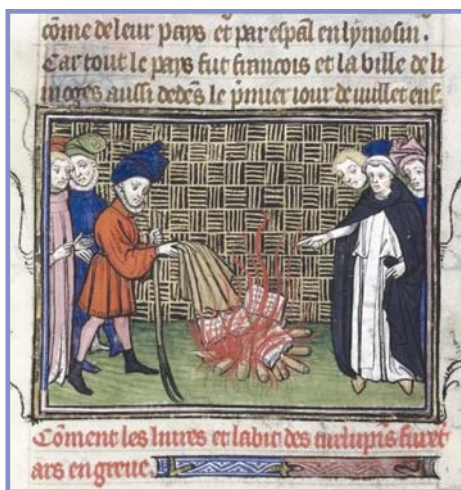 cõme de leur pays et par espãl en lymosin.
Car tout le pays fut francois et la ville de li
moges aussi dedẽs le p̃mier iour de iuillet ens
Cõment les liures et labit des turlupis furẽt
ars en greue.